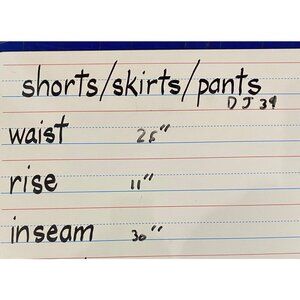 shorts/skirts/pants
DJ 39
waist 25"
rise 11"
inseam 30"